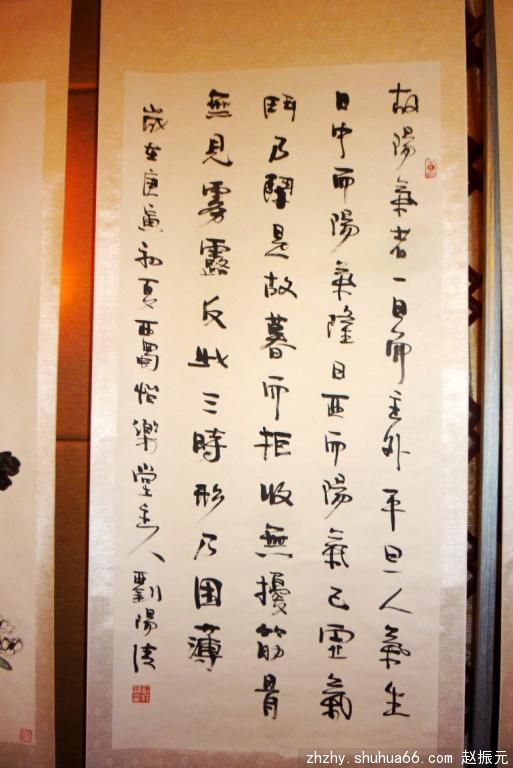 故陽氣者一日而主外平旦人氣生
日中而陽氣隆日西而陽氣已虛氣
門乃閉是故暮而拒收無擾筋骨
無見霧露反此三時形乃困薄
歲在庚寅初夏西蜀怡樂堂主人劉陽
zhzhy.shuhua66.com 赵振元